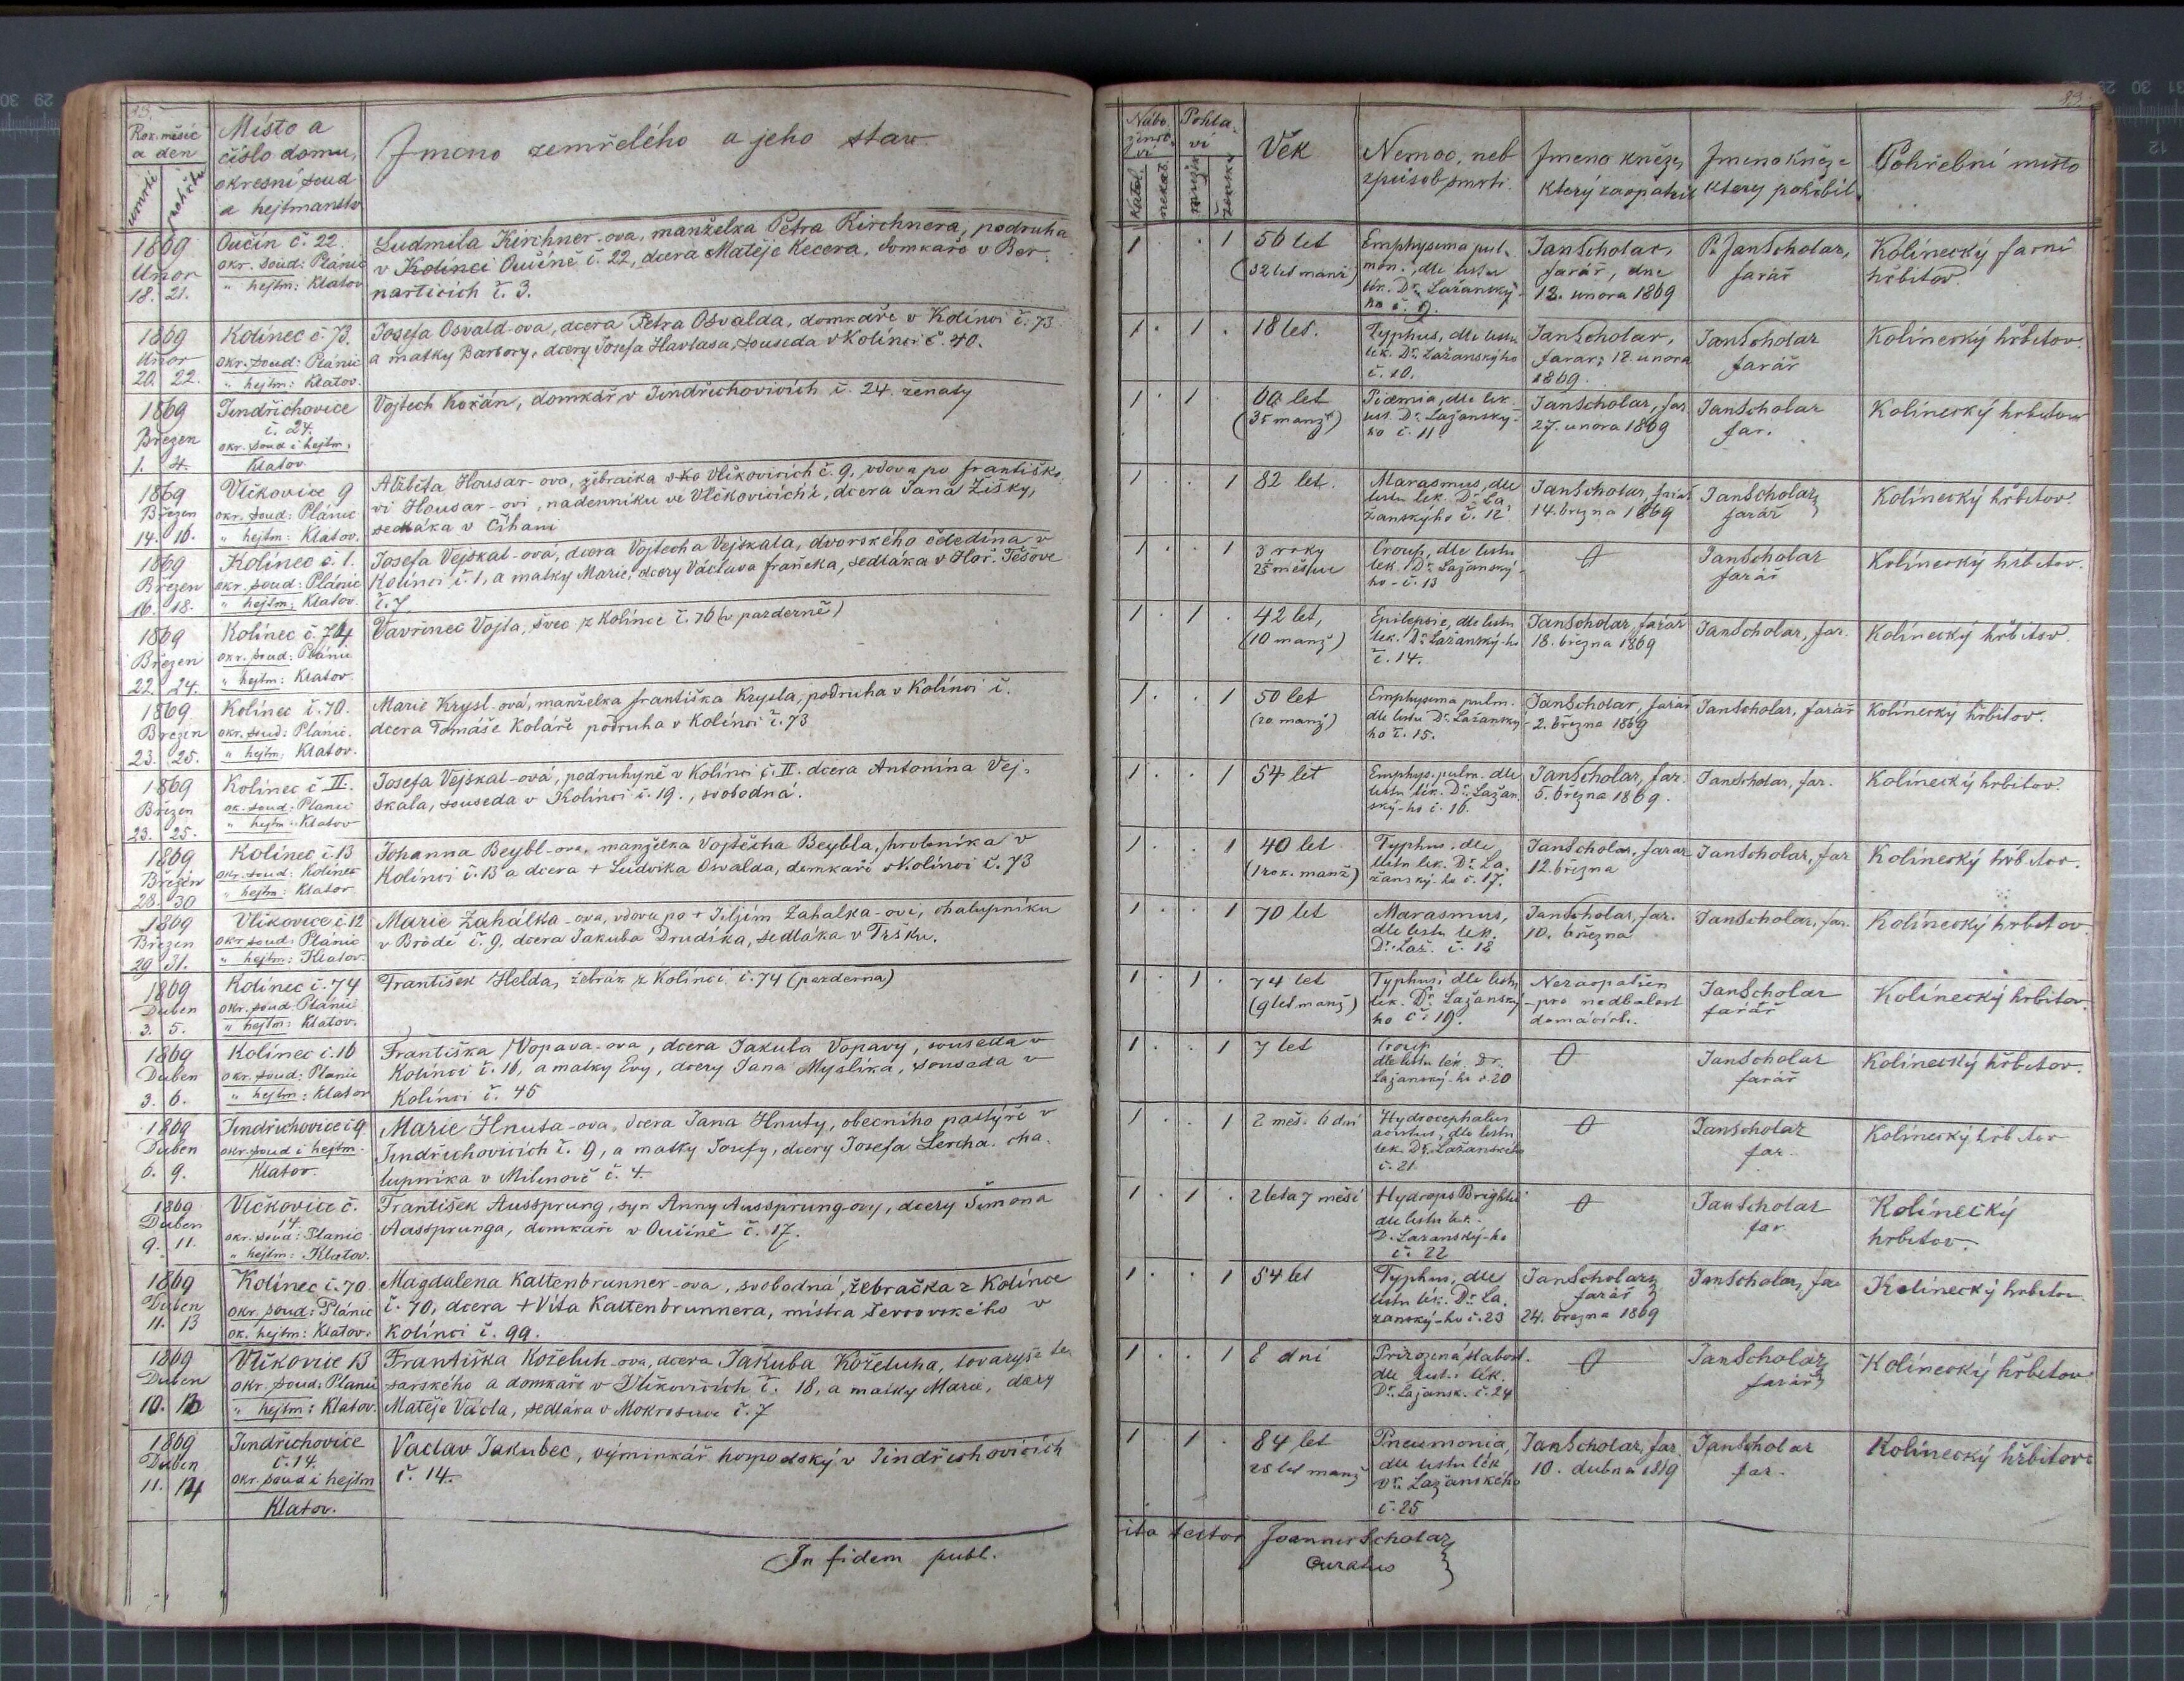 Rok. měsíc a den
umrtí
pohřbu
Místo a
číslo domu,
okresní soud
a hejtmanstvo
Jmeno zemřelého a jeho stav
Nábo
ženst
vi
Katol.
nekat.
Pohla
vi
mužské
ženské
Věk
Nemoc, neb
způsob smrti.
Jmeno kněze,
který zaopatřil
Jmeno kněze
ktery pohřbil
Pohřební místo
1869
Unor
18. 21.
Oučín č. 22.
okr. soud: Plánic
" hejtm: Klatov
Ludmila Kirchner-ova, manželka Petra Kirchnera, podruha
v Kolínci Oučíně č. 22, dcera Matěje Kecera, domkaře v Ber-
narticích č. 3.
1 . . 1
56 let
(32 let manž)
Emphysema pul-
mon., dle listu
lék. Dr. Lažanský-
ho č. 9.
Jan Scholar,
farář, dne
12. unora 1869
P. Jan Scholar,
farář
Kolínecký farní
hřbitov.
1869
Unor
20. 22.
Kolínec č. 73.
okr. soud: Plánic
" hejtm: Klatov.
Josefa Osvald-ova, dcera Petra Osvalda, domkaře v Kolínci č. 73
a matky Barbory, dcery Josefa Havlasa, souseda v Kolínci č. 40.
1 . 1 .
18 let.
Typhus, dle listu
lék. Dr. Lažanskýho
č. 10.
Jan Scholar,
farář, 18. unora
1869.
Jan Scholar
farář
Kolínecký hřbitov.
1869
Březen
1. 4.
Jindřichovice
č. 24.
okr. soud i hejtm.
Klatov.
Vojtech Kořán, domkář v Jindřichovicích č. 24. ženatý
1 . 1 .
60 let
(35 manž)
Piæmia, dle lék.
list. Dr. Lažanský-
ho č. 11
Jan Scholar, far.
27. unora 1869
Jan Scholar
far.
Kolínecký hřbitov
1869
Březen
14. 16.
Vlčkovice 9
okr. soud: Plánic
" hejtm: Klatov.
Alžběta Housar-ova, žebračka Vlčkovicích č. 9, vdova po Františko
vi Housar-ovi, nadenníku ve Vlčkovicích, dcera Jana Žišky,
sedláka v Číhani
1 . . 1
82 let.
Marasmus, dle
listu lék. Dr. La
žanskýho č. 12
Jan Scholar, farář
14. března 1869
Jan Scholar
farář
Kolínecký hřbitov
1869
Březen
16. 18.
Kolínec č. 1.
okr. soud: Plánic
" hejtm: Klatov.
Josefa Vejskal-ová, dcera Vojtecha Vejskala, dvorského čeledína v
Kolínci č. 1, a matky Marie, dcery Václava Fraňka, sedláka v Hoř. Těšově
č. 7
1 . . 1
3 roky
Croup, dle listu
lék. Dr. Lažanský-
ho - č. 13
0
Jan Scholar
farář
Kolínecký hřbitov.
1869
Březen
22. 24.
Kolínec č. 74
okr. soud: Plánic
" hejtm: Klatov.
Vavřinec Vojta, švec z Kolínce č. 70 (v pazderně)
1 . 1 .
42 let,
(10 manž)
Epilepsie, dle listu
lék. Dr. Lažanský-ho
č. 14.
Jan Scholar, farář
18. března 1869
Jan Scholar, far.
Kolínecký hřbitov.
1869
Březen
23. 25.
Kolínec č. 70.
okr. soud: Plánic.
" hejtm: Klatov.
Marie Krysl-ová, manželka Františka Krysla, podruha v Kolínci č.
dcera Tomáše Koláře podruha v Kolínci č. 73
1 . . 1
50 let
(20 manž)
Emphysema pulm.
dle listu Dr. Lažanský
ho č. 15.
Jan Scholar, farář
2. března 1869
Jan Scholar, farář
Kolínecký hřbitov.
1869
Březen
23. 25.
Kolínec č. II.
ok. soud: Plánic
" hejtm: Klatov
Josefa Vejskal-ová, podruhyně v Kolínci č. II. dcera Antonína Vej-
skala, souseda v Kolínci č. 19., svobodná.
1 . . 1
54 let
Emphys. pulm. dle
listu lék. Dr. Lažan
ský-ho č. 16.
Jan Scholar, far.
5. března 1869.
Jan Scholar, far.
Kolínecký hřbitov.
1869
Březen
28. 30
Kolínec č. 13
okr. soud: Kolínec
" hejtm: Klatov
Johanna Beybl-ova, manželka Vojtěcha Beybla, hrobníka v
Kolínci č. 13 a dcera + Ludvíka Osvalda, domkaře v Kolínci č. 73
1 . . 1
40 let
(1 rok. manž)
Typhus, dle
listu lék. Dr. La
žanský-ho č. 17.
Jan Scholar, farář
12. března
Jan Scholar, far
Kolínecký hřbitov.
1869
Březen
29 31.
Vlčkovice č. 12
okr. soud: Plánic
" hejtm: Klatov.
Marie Zahálka-ova, vdova po + Jiljím Zahalka-ovi, chalupníku
v Brodě č. 9, dcera Jakuba Drudíka, sedláka v Tršku.
1 . . 1
70 let
Marasmus,
dle listu lék.
Dr. Laž. č. 18
Jan Scholar, far.
10. března
Jan Scholar, far.
Kolínecký hřbitov.
1869
Duben
3. 5.
Kolínec č. 74
okr. soud Plánic
" hejtm: Klatov.
František Helda, žebrák z Kolínci č. 74 (pazderna)
1 . 1 .
74 let
(9 let manž)
Typhus, dle listu
lék. Dr. Lažanský
ho č. 19.
Nezaopatřen
- pro nedbalost
domácích.
Jan Scholar
farář
Kolínecký hřbitov.
1869
Duben
3. 6.
Kolínec č. 16
okr. soud: Plánic
" hejtm: Klatov
Františka Vopava-ova, dcera Jakuba Vopavy, souseda v
Kolínci č. 16, a matky Evy, dcery Jana Myslíka, souseda v
Kolínci č. 45
1 . . 1
7 let
Croup
dle listu lék. Dr.
Lažanský-ho č. 20
0
Jan Scholar
farář
Kolínecký hřbitov.
1869
Duben
6. 9.
Jindřichovice č 9
okr. soud i hejtm.
Klatov.
Marie Hnuta-ova, dcera Jana Hnuty, obecního pastýře v
Jindřichovicích č. 9, a matky Josefy, dcery Josefa Lercha, cha-
lupníka v Milinově č. 4.
1 . . 1
2 měs. 6 dní
Hydrocephalus
acutus, dle listu
lék. Dr. Lažanského
č. 21
0
Jan Scholar
far.
Kolínecký hřbitov
1869
Duben
9. 11.
Vlčkovice č.
14.
okr. soud: Plánic
" hejtm: Klatov.
František Aussprung, syn Anny Aussprung-ovy, dcery Šimona
Aussprunga, domkaře v Oučíně č. 17.
1 . 1 .
2 leta 7 měsí
Hydrops Brightii
dle listu lék.
Dr. Lažanský-ho
č. 22
0
Jan Scholar
far
Kolínecký
hřbitov.
1869
Duben
11. 13
Kolínec č. 70
okr. soud: Plánic
ok. hejtm: Klatov.
Magdalena Kaltenbrunner-ova, svobodná, žebračka z Kolínce
č. 70, dcera + Víta Kaltenbrunnera, mistra ševcovského v
Kolínci č. 99.
1 . . 1
54 let
Typhus, dle
listu lék. Dr. La
žanský-ho č. 23
Jan Scholar
farář
24. března 1869
Jan Scholar, fa
Kolínecký hřbitov
1869
Duben
Vlčkovice 13
okr. soud: Plánic
" hejtm: Klatov.
Františka Koželuh-ova, dcera Jakuba Koželuha, tovaryše te
sarského a domkaře v Vlčkovicích č. 18, a matky Marie, dcery
Matěje Václa, sedláka v Mokrosuce č. 7
1 . . 1
8 dní
Přirozená slabost.
dle listu lék.
Dr. Lažansk. č. 24
0
Jan Scholar
farář
Kolínecký hřbitov
1869
Duben
11. 14
Jindřichovice
č. 14.
okr. soud i hejtm
Klatov.
Vaclav Jakubec, výminkář hospodský v Jindřichovicích
č. 14.
1 . 1 .
84 let
28 let manž
Pneumonia,
dle listu lék
Dr. Lažanského
č. 25
Jan Scholar, far.
10. dubna 1869
Jan Scholar
far.
Kolínecký hřbitov
In fidem publ.
ita testor Joannes Scholar
Curatus